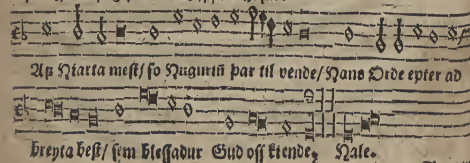 Af Hiarta mest/ so Hugurin̄ þar til vende/ Hans Orde epter ad
breyta best/ sem Blessadur Gud oss kiende, Hale.